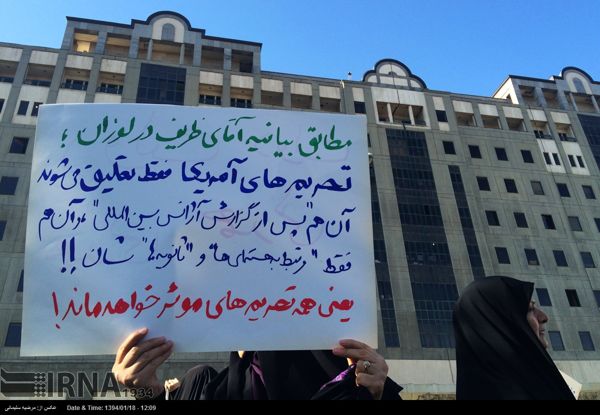 مطابق بیانیه آقای ظریف در لوزان؛
تحریم های آمریکا فقط تعلیق می شوند
آن هم "پس از گزارش آژانس بین المللی" و آن هم
فقط "مرتبط به هسته ای ها" و "ثانویه ها" شان!!
یعنی همه تحریم های موثر خواهد ماند!
IRNA 1934
Date & Time: 1394/01/18 - 12:09
عکس از: مرضیه سلیمانی